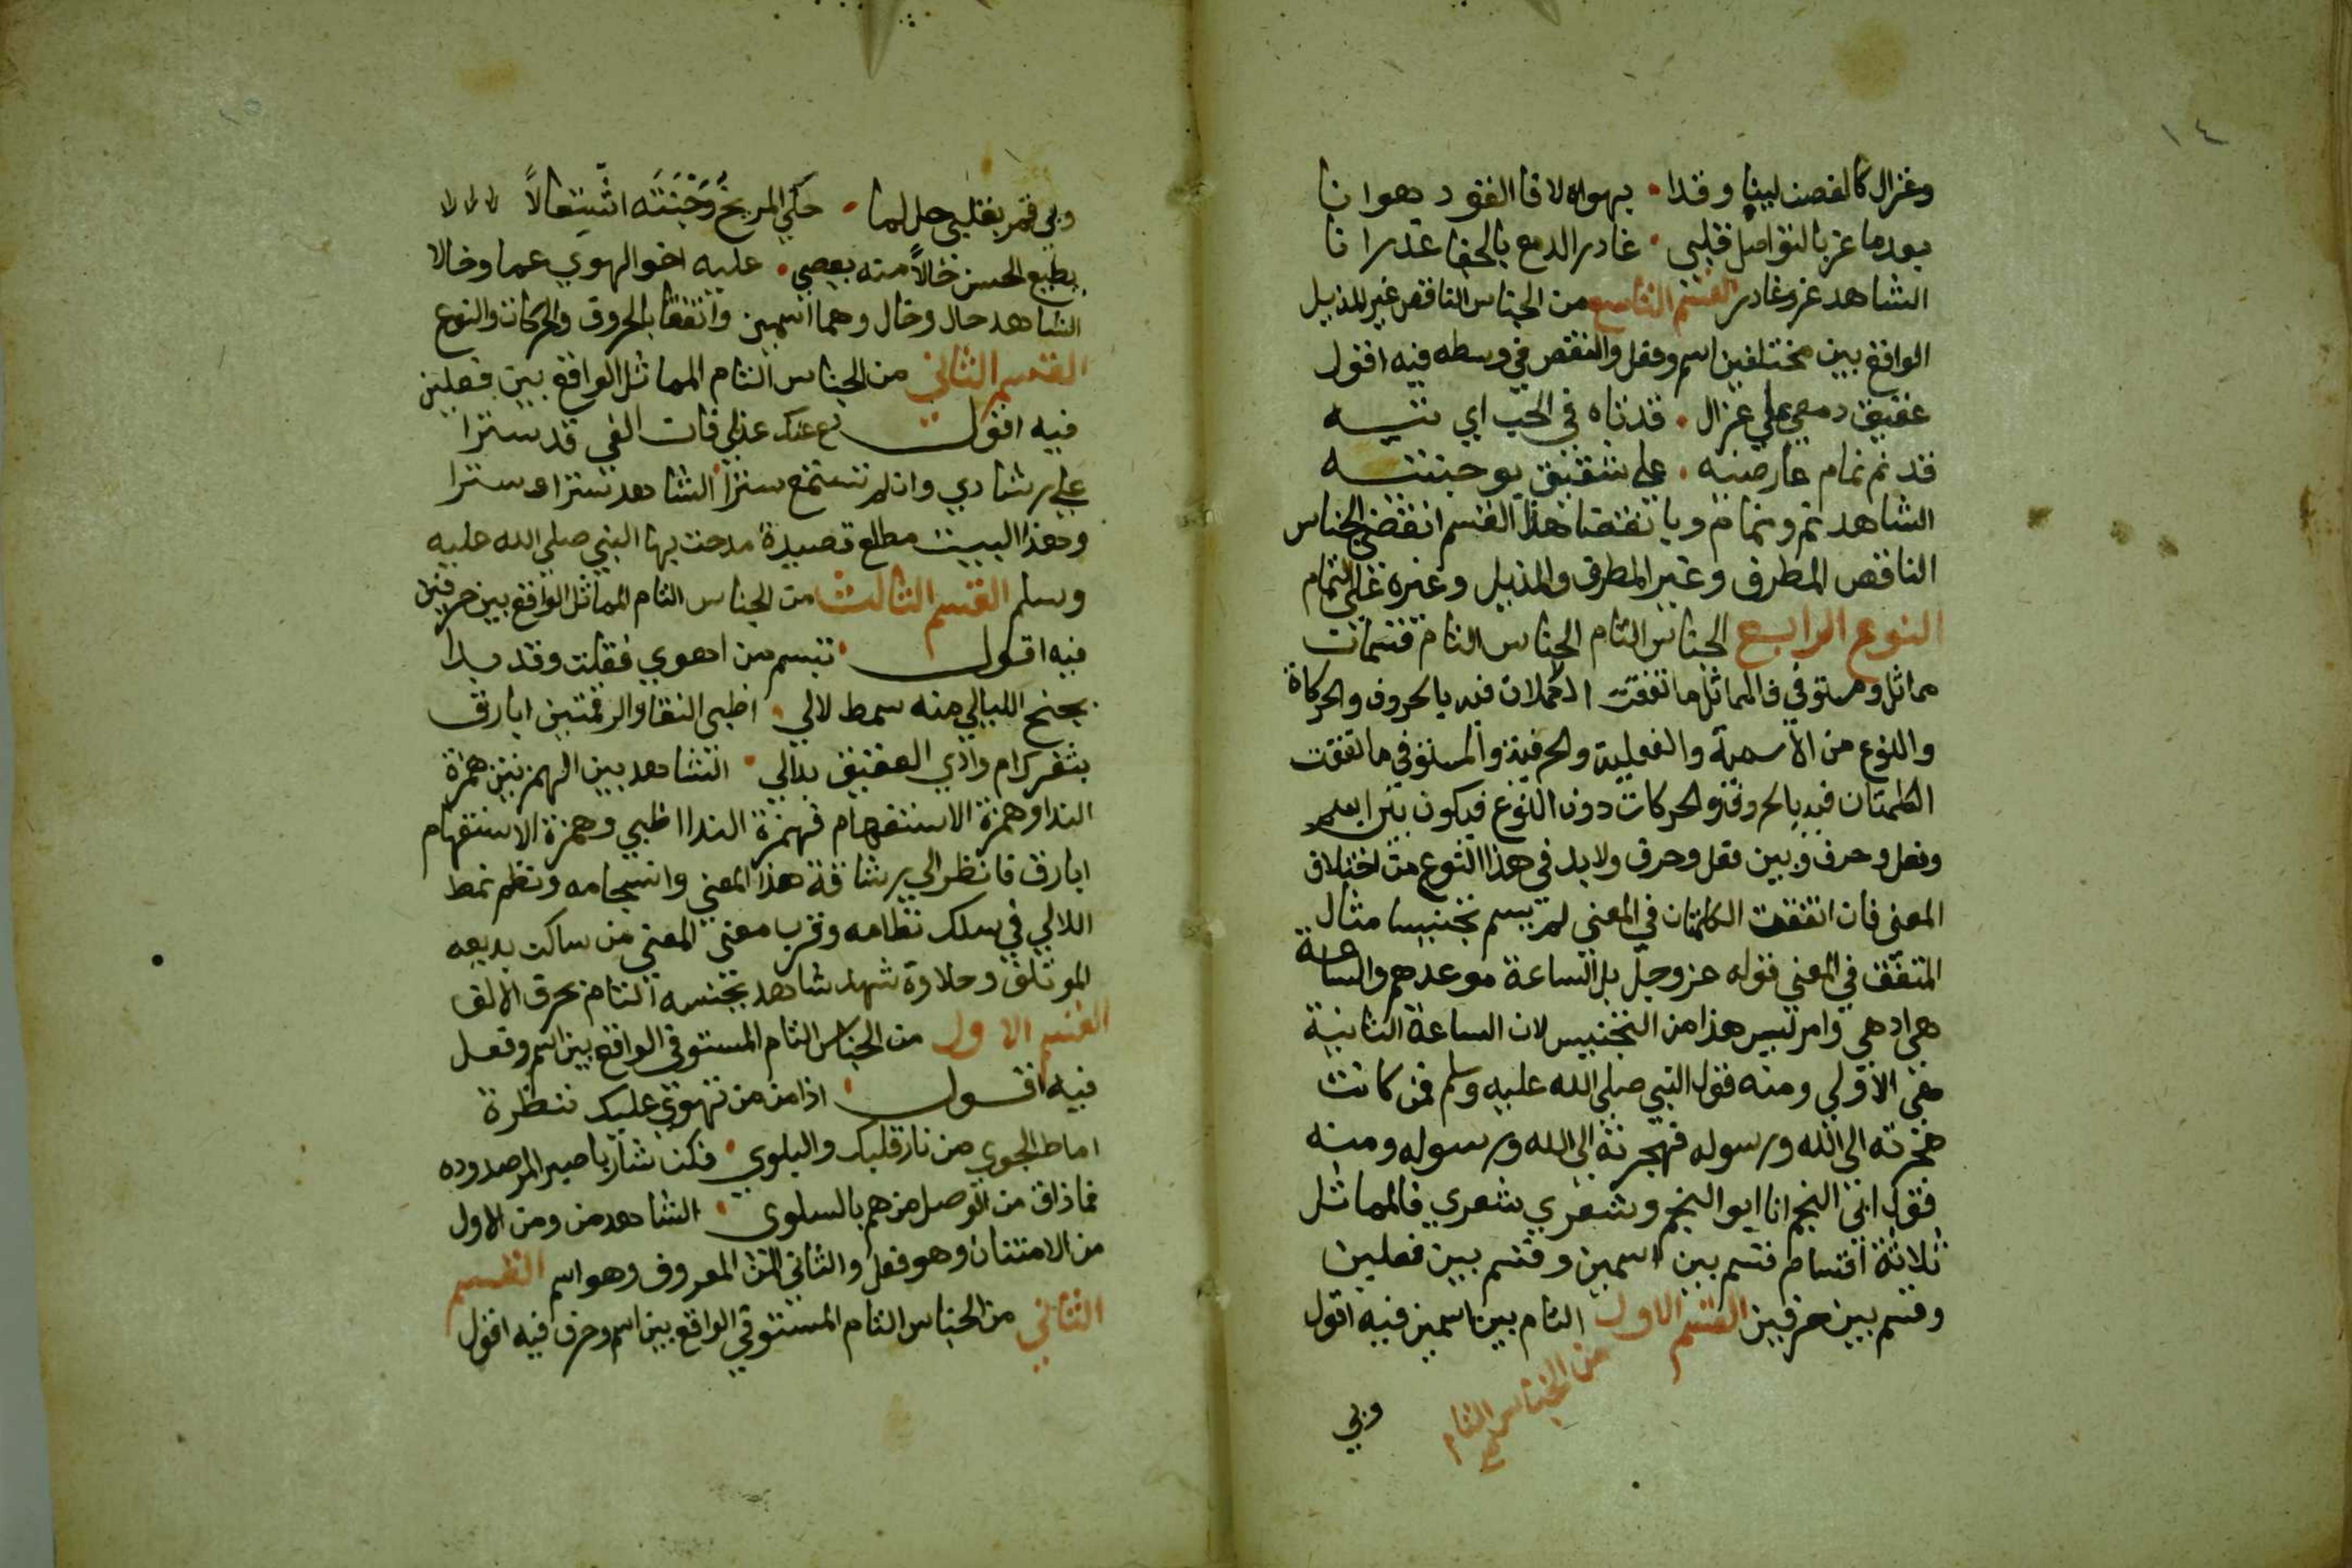 ١٤
وغزال كالغصن لينا وقدا • بهواه لاقا الفؤد هوانا
بعد ما عز بالتواصل قلبي • غادر الدمع بالجفا غدرانا
الشاهد عز وغادر القسم التاسع من الجناس الناقص غير المذيل
الواقع بين مختلفين اسم وفعل والنقص في وسطه فيه اقول
عقيق دمعي علي غزال • قد تاه في الحب اي تيه
قد نم نمام عارضيه • علي شقيق بوجنتيه
الشاهد نم ونمام وبانقضا هذا القسم انقضي الجناس
الناقص المطرف وغير المطرف والمذيل وغيره علي التمام
النوع الرابع الجناس التام الجناس التام قسمان
مماثل ومستوفي فالمماثل ما اتفقت الكلمتان فيه بالحروف والحركاة
والنوع من الاسمية والفعلية والحرفية والمستوفي ما اتفقت
الكلمتان فيه بالحروف والحركات دون النوع فيكون بين اسم
وفعل وحرف وبين فعل وحرف ولا بد في هذا النوع من اختلاف
المعني فان اتفقت الكلمتان في المعني لم يسم تجنيسا مثال
المتفق في المعني قوله عز وجل بل الساعة موعدهم والساعة
هي ادهي وامر ليس هذا من التجنيس لان الساعة الثانية
هي الاولي ومنه قول النبي صلي الله عليه وسلم فمن كانت
هجرته الي الله ورسوله فهجرته الي الله ورسوله ومنه
قول ابي النجم انا ابو النجم وشعري شعري فالمماثل
ثلاثة اقسام قسم بين اسمين وقسم بين فعلين
وقسم بين حرفين القسم الاول التام بين اسمين فيه اقول
من الجناس التام صح
وبي
وبي قمر بقلبي حل لما • حكي المريخ وَجْنَتَه اشتعالاً
بطبع الحسن خالاً منه يعصي • عليه اخو الهوي عما وخالا
الشاهد خال وخال وهما اسمين واتفقا بالحروف والحركات والنوع
القسم الثاني من الجناس التام المماثل الواقع بين فعلين
فيه اقول دع عنك عذلي فان الغي قد سترا
علي رشادي وان لم تستمع سترا الشاهد سترا وسترا
وهذا البيت مطلع قصيدة مدحت بها النبي صلي الله عليه
وسلم القسم الثالث من الجناس التام المماثل الواقع بين حرفين
فيه اقول • تبسم من اهوي فقلت وقد بدا
بجنح الليالي منه سمط لالي • اظبي النقا والرقمتين ابارق
بثغرك ام وادي العقيق بدالي • الشاهد بين الهمزتين همزة
الندا وهمزة الاستفهام فهمزة الندا اظبي وهمزة الاستفهام
ابارق فانظر الي رشاقة هذا المعني وانسجامه ونظم نمط
اللالي في سلك نظامه وقرب معني المعني من ساكن بديعه
الموتلف وحلاوة شهد شاهد تجنيسه التام بحرف الالف
القسم الاول من الجناس التام المستوفي الواقع بين اسم وفعل
فيه اقول • اذا من من تهوي عليك بنظرة
اماط الجوي من نار قلبك والبلوي • فكن شاربا صبر المر صدوده
فما ذاق من الوصل من هم بالسلوي • الشاهد من ومن الاول
من الامتنان وهو فعل والثاني المن المعروف وهو اسم القسم
الثاني من الجناس التام المستوفي الواقع بين اسم وحرف فيه اقول